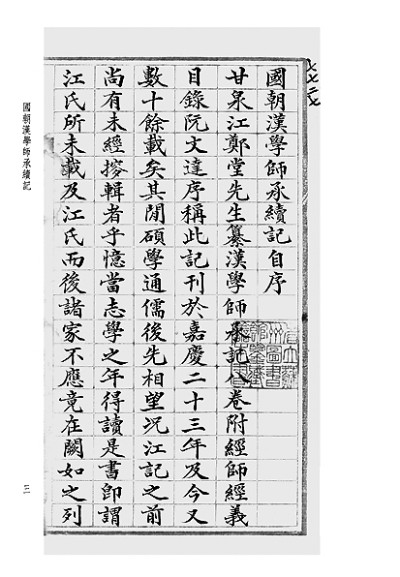 國朝漢學師承續記自序
甘泉江鄭堂先生纂漢學師承記八卷附經師經義
目錄阮文達序稱此記刊於嘉慶二十三年及今又
數十餘載矣其閒碩學通儒後先相望況江記之前
尚有未經摉輯者乎憶當志學之年得讀是書卽謂
江氏所未載及江氏而後諸家不應竟在闕如之列
國朝漢學師承續記
三